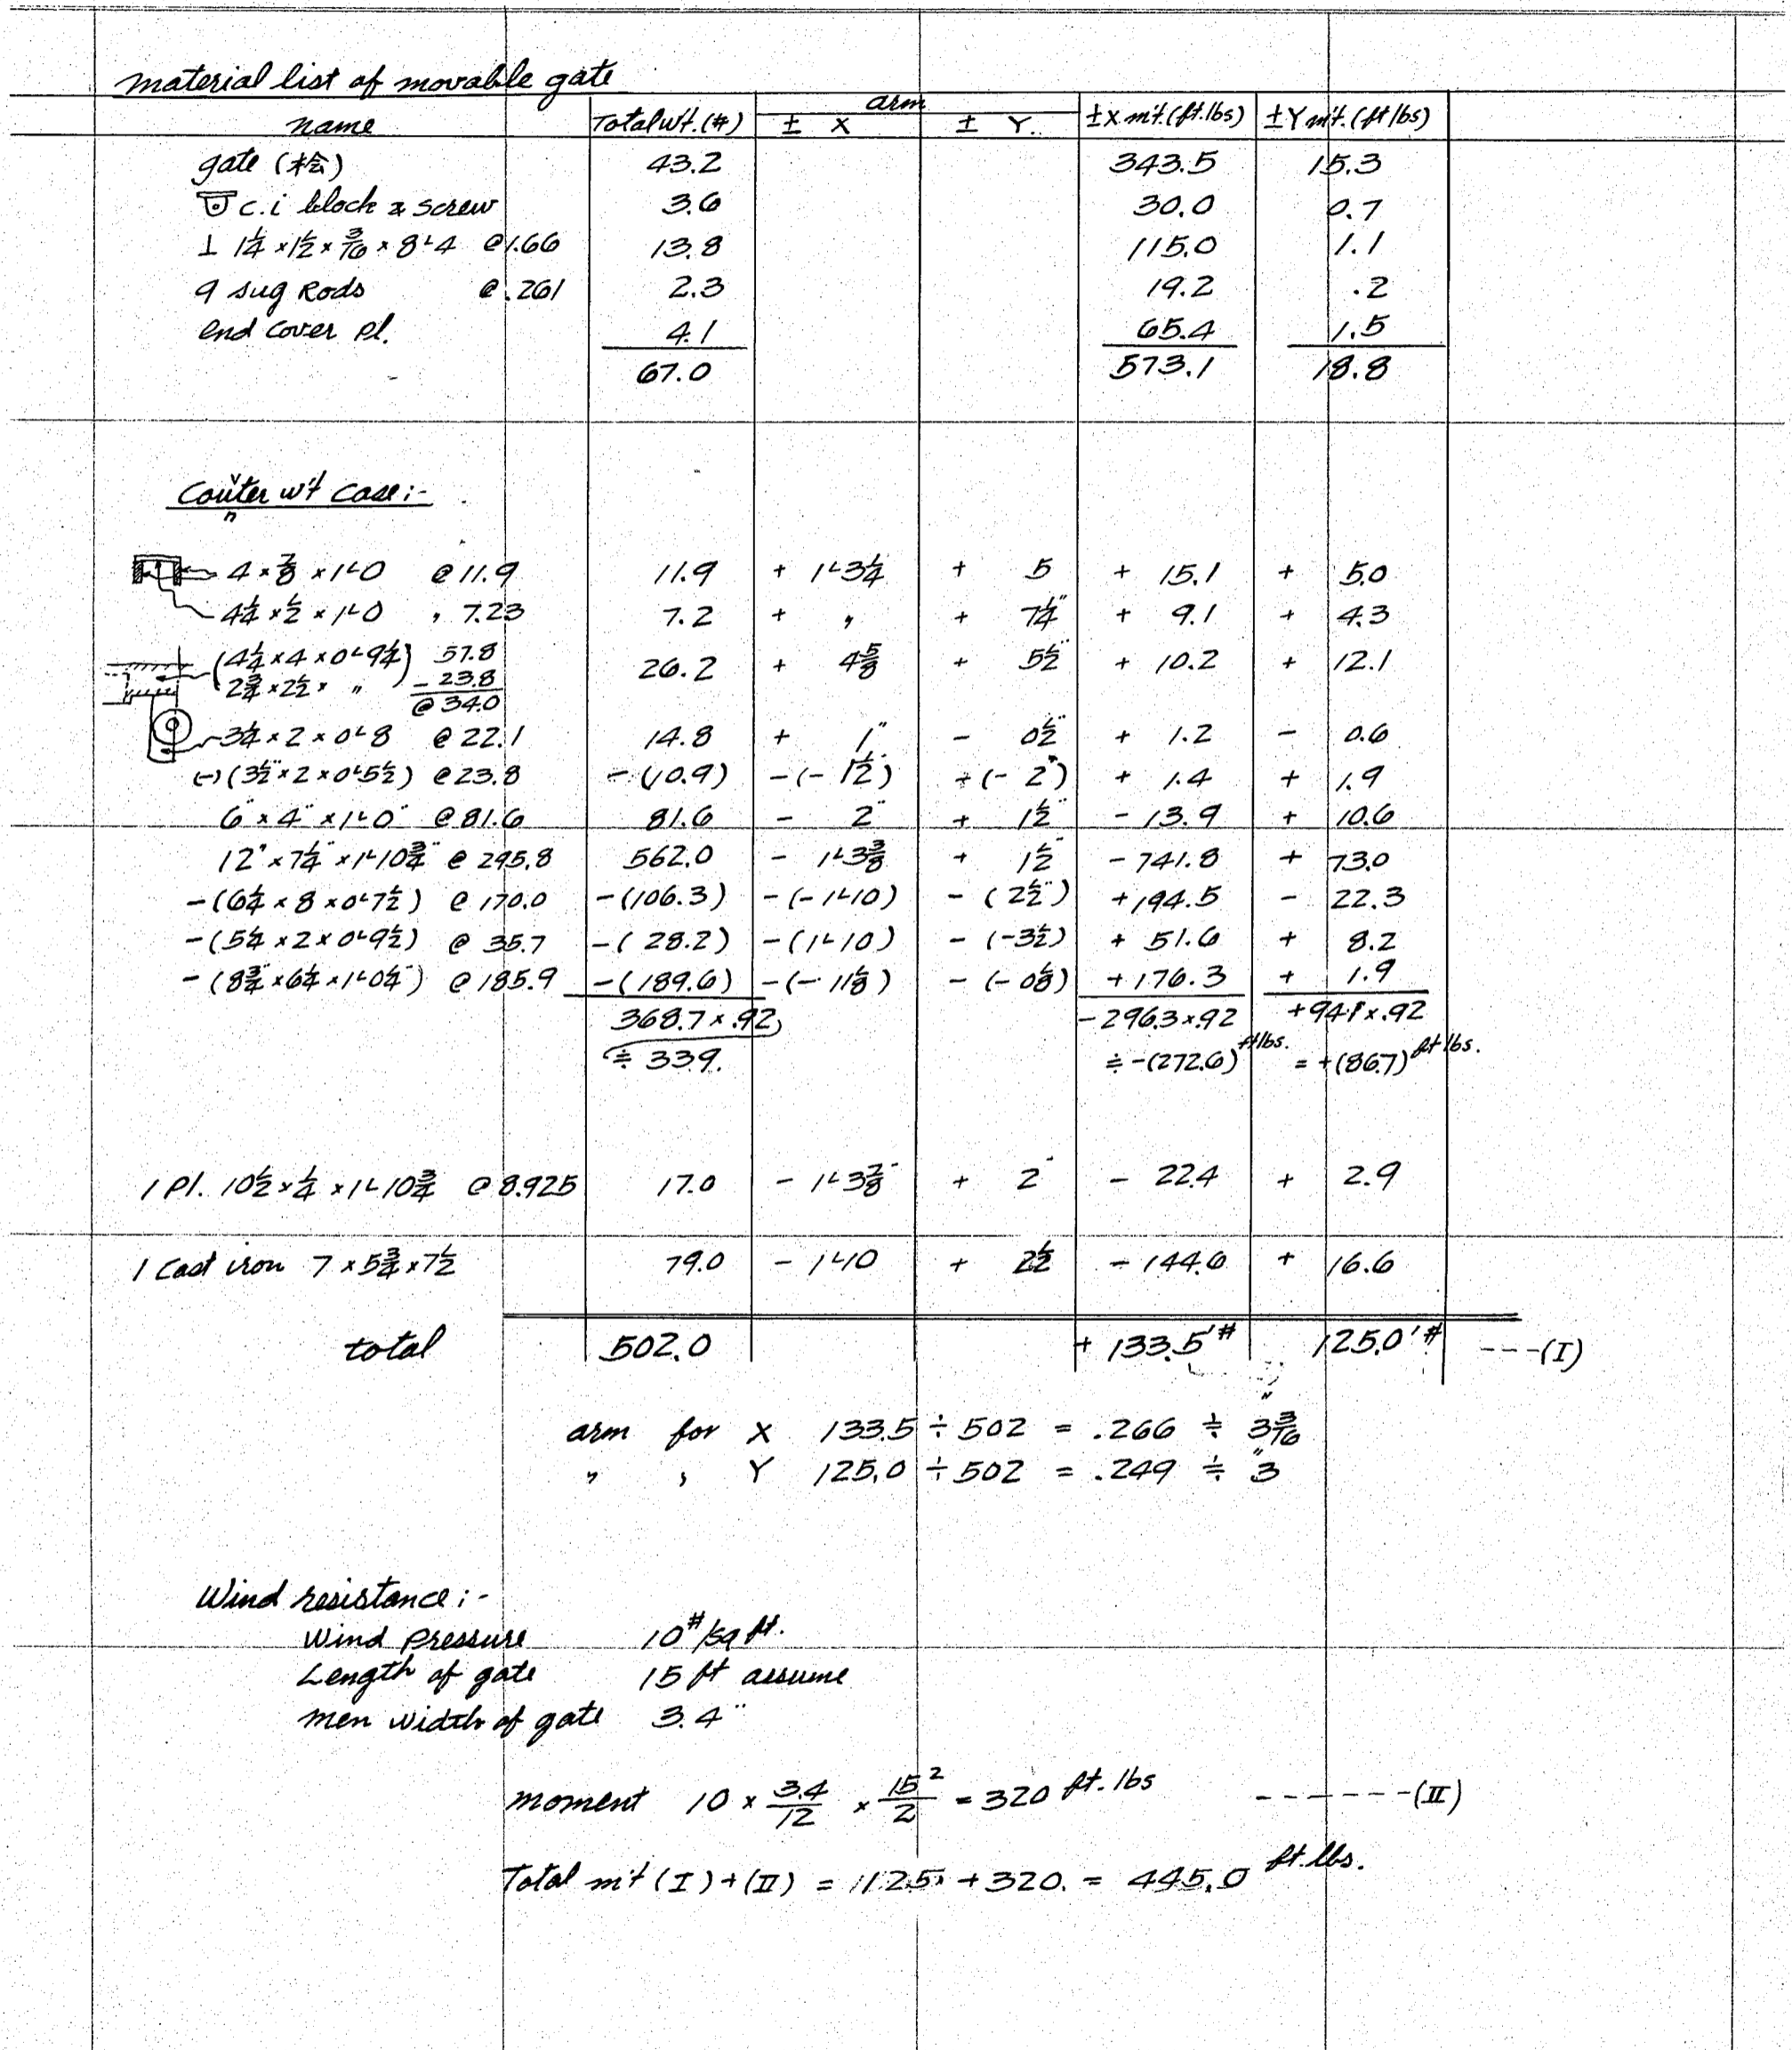 material list of movable gate
name Total wt. (#) arm ± X ± Y. ±X m't. (ft. lbs) ±Y m't. (ft lbs)
gate (桧) 43.2 343.5 15.3
c.i block & screw 3.6 30.0 0.7
⊥ 1¼ × 1½ × 3/16 × 8'-4 @1.66 13.8 115.0 1.1
9 sug Rods @.261 2.3 19.2 .2
end cover Pl. 4.1 65.4 1.5
67.0 573.1 18.8
Couter w't Case :-
n
4 × ⅞ × 1'-0 @ 11.9 11.9 + 1'-3¼ + 5 + 15.1 + 5.0
4¼ × ½ × 1'-0 " 7.23 7.2 + " + 7¼" + 9.1 + 4.3
(4¼ × 4 × 0'-9¼) 57.8 26.2 + 4⅝ + 5½ + 10.2 + 12.1
2¾ × 2½ × " - 23.8
@ 34.0
3¼ × 2 × 0'-8 @ 22.1 14.8 + 1" - 0½" + 1.2 - 0.6
(-) (3½" × 2 × 0'-5½) @ 23.8 - (10.9) - (- 1½") + (- 2") + 1.4 + 1.9
6" × 4" × 1'-0" @ 81.6 81.6 - 2" + 1½" - 13.9 + 10.6
12" × 7¼" × 1'-10¾" @ 295.8 562.0 - 1'-3⅜ + 1½ - 741.8 + 73.0
- (6¼ × 8 × 0'-7½) @ 170.0 - (106.3) - (- 1'-10) - (2½") + 194.5 - 22.3
- (5¼ × 2 × 0'-9½) @ 35.7 - (28.2) - (1'-10) - (-3½) + 51.6 + 8.2
- (8¾" × 6¼ × 1'-0¼") @ 185.9 - (189.6) - (- 11⅛) - (- 0⅛) + 176.3 + 1.9
368.7 × .92 - 296.3 × .92 + 94.1 × .92
≑ 339. ≑ - (272.6) ft lbs. = + (86.7) ft lbs.
1 Pl. 10½ × ¼ × 1'-10¾ @ 8.925 17.0 - 1'-3⅞" + 2" - 22.4 + 2.9
1 Cast iron 7 × 5¾ × 7½ 79.0 - 1'-10 + 2½ - 144.6 + 16.6
total 502.0 + 133.5'# 125.0'# ---(I)
arm for X 133.5 ÷ 502 = .266 ≑ 3 3/16"
" , Y 125.0 ÷ 502 = .249 ≑ 3"
Wind resistance :-
Wind Pressure 10#/sq ft.
Length of gate 15 ft assume
men width of gate 3.4"
moment 10 × 3.4/12 × 15²/2 = 320 ft. lbs ------(II)
Total m't (I) + (II) = 1125. + 320. = 445.0 ft. lbs.